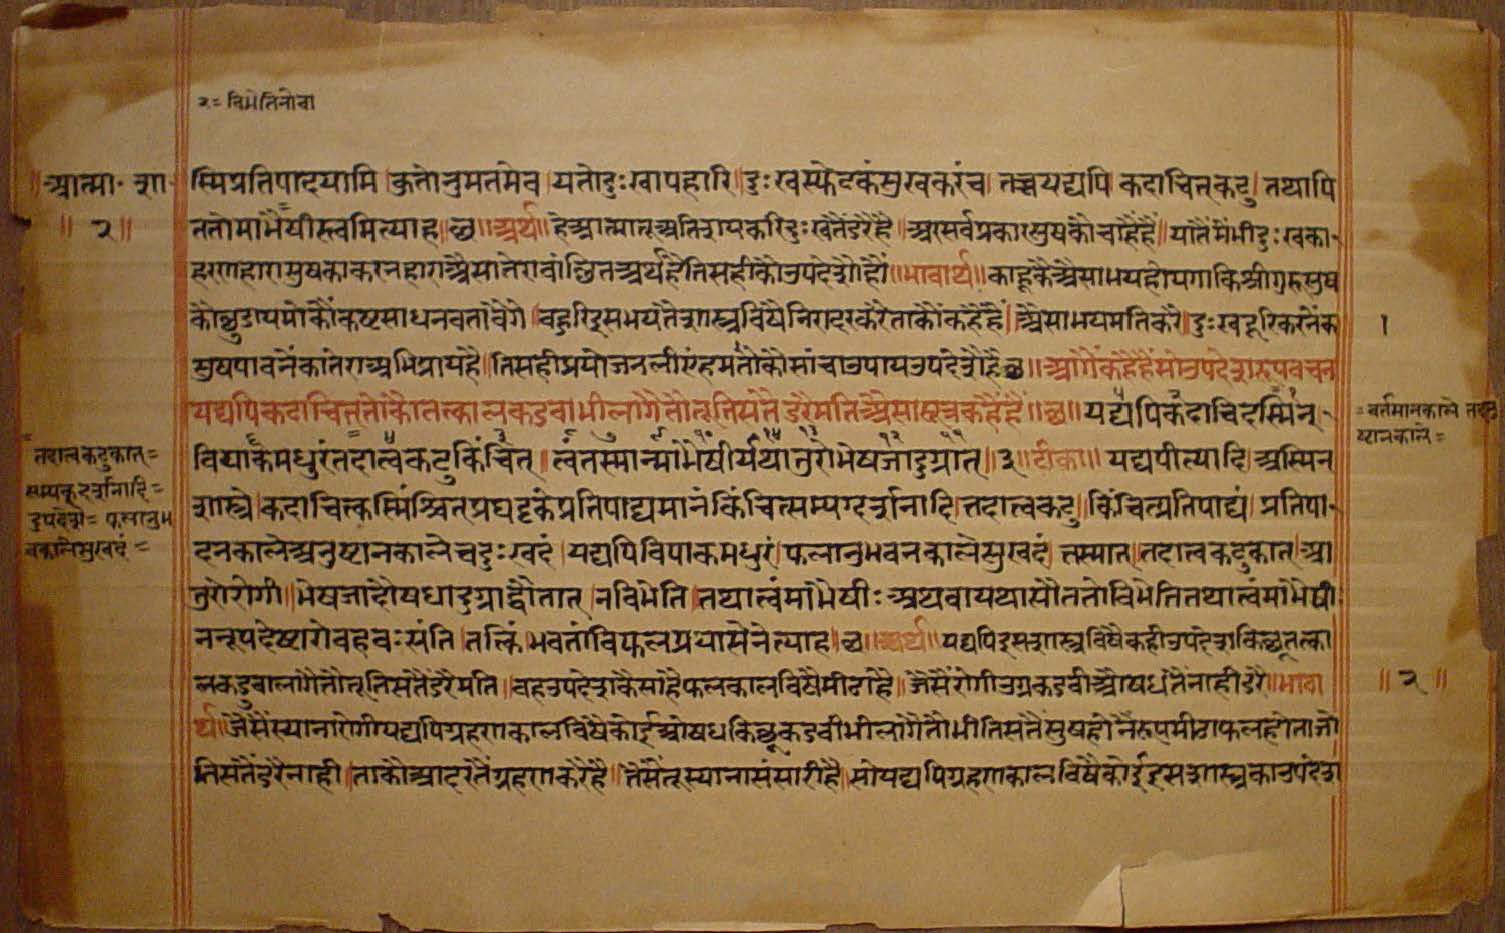 २= बिभेतिनोवा
आत्मा॰ शा॰
॥२॥
स्मिप्रतिपादयामि।कुतोनुमतमेव।यतोदुःखापहारि।दुःखस्फेटकंसुखकरंच।तच्चयद्यपि।कदाचित्कटु।तथापि
ततोमाभैषीस्त्वमित्याह॥छ॥अर्थ॥हेआत्मातूअतिशयकरिदुःखतैंडरैहै॥अरसर्वप्रकारसुषकौचाहैहैं॥यातैंमैंभीदुःखका॰
हरणहारासुषकाकरनहाराअैसातेरावांछितअर्थहैतिसहीकौउपदेशौंहौं॥भावार्थ॥काहूकैअैसाभयहोयगाकिश्रीगुरुसुष
कौछुडायमोकौंकष्टसाधनबतावेंगे।बहुरिइसभयतैंशास्त्रविषैनिरादरकरैताकौंकहैहैं॥अैसाभयमतिकरै।दुःखदूरिकरनेंक
सुषपावनेंकातेराअभिप्रायहै॥तिसहीप्रयोजनलीएंहमतोकौसांचाउपायउपदेशैहैछ॥आगैंकहैहैंसोउपदेशरूपवचन
यद्यपिकदाचित्तोकौतत्कालकडवाभीलागैतौतूतिसतैंडरैमतिअैसासूत्रकहैहैं॥छ॥यद्यपिकदाचिदस्मिन्॰
विपाकमधुरंतदात्वकटुकिंचित्।त्वंतस्मान्माभैषीर्यथातुरोभेषजादुग्रात्॥३॥टीका॥यद्यपीत्यादि।अस्मिन
शास्त्रे।कदाचित्कस्मिंश्चितप्रघट्टकेप्रतिपाद्यमानंकिंचित्सम्यग्दर्शनादि।तदात्वकटु।किंचित्प्रतिपाद्यं।प्रतिपा॰
दनकालेअनुष्टानकालेचदुःखदं।यद्यपिविपाकमधुरं।फलानुभवनकालेसुखदं।तस्मात्।तदात्वकटुकात्।आ
तुरोरोगी॥भेषजादौषधादुग्राद्वौतात्।नबिभेति।तथात्वंमाभैषीःअथवायथासौततोबिभेतितथात्वंमाभैषी
ननूपदेष्टारोबहवःसंति।तत्किंभवतांविफलप्रयासेनेत्याह।छ॥अर्थ॥यद्यपिइसशास्त्रविषैकहीउपदेशकिछूतत्का
लकडुवालागैतौतूतिसतैंडरैमति॥बहउपदेशकैसाहैफलकालविषैमीठाहै॥जैसैंरोगीउग्रकडवीऔषधतैंनाहीडरै॥भावा
र्थ॥जैसैंस्यानारोगीयद्यपिग्रहणकालविषैकोईओषधकिछूकडवीभीलागैतौभीतिसतैंसुषहोनैंरूपमीठाफलहोताजो
तिसतैंडरैनाही।ताकौआदरतैंग्रहणकरैहै॥तैसैंतूस्यानासंसारीहै॥सोयद्यपिग्रहणकालविषैकोईइसशास्त्रकाउपदेश
तदात्वकटुकात्=
सम्यक्दर्शनादि=
वकालेसुखदं=
१
=वर्तमानकाले
ष्टानकाले=
॥२॥